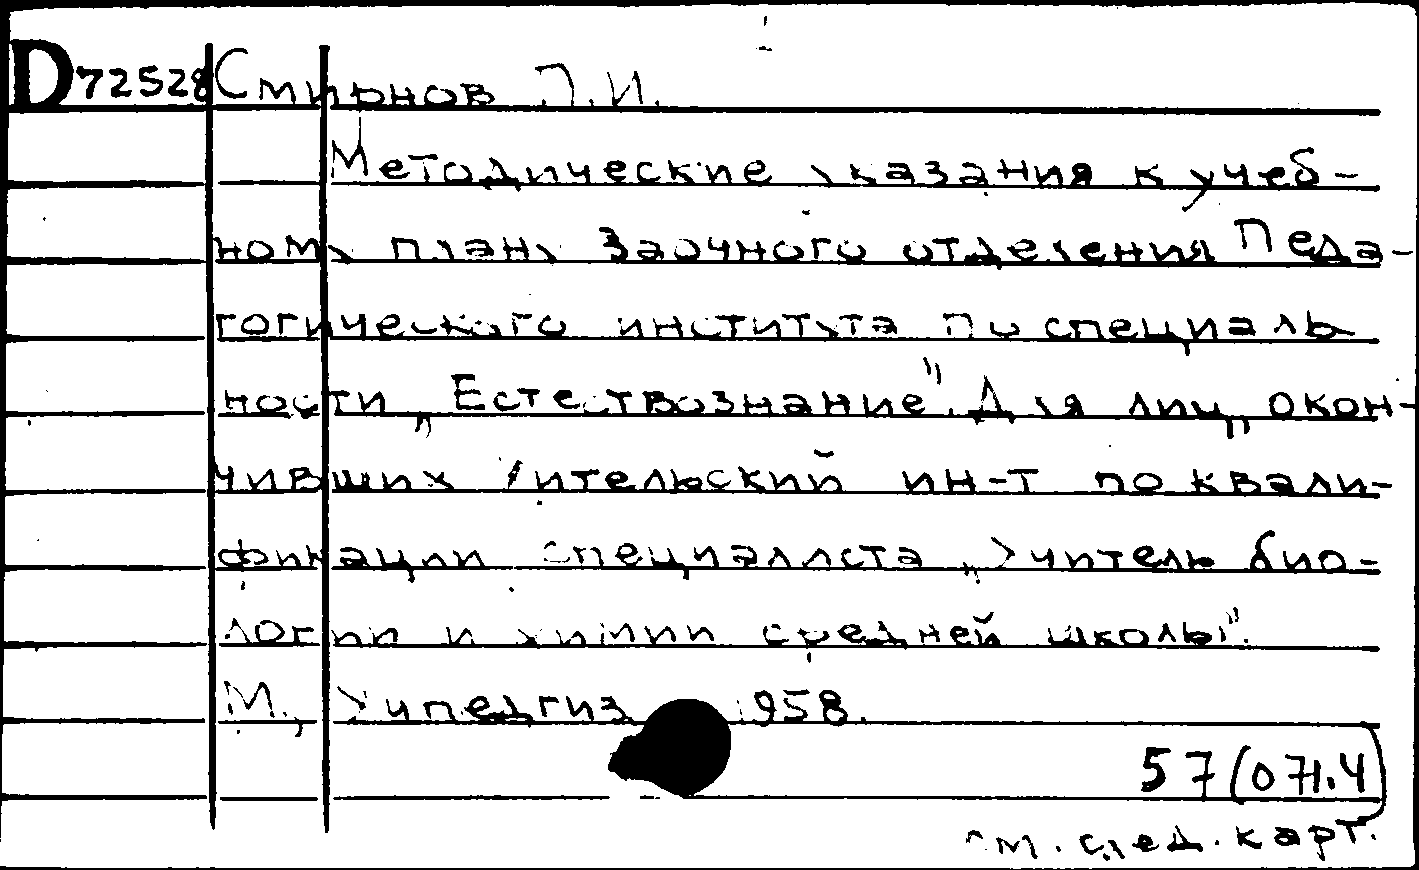 D 72528 Смирнов П.И.
Методические указания к учеб-
ному плану Заочного отделения Педа-
гогического института по специаль
ности „Естествознание". Для лиц, окон-
чивших учительский ин-т по квали-
фикации специалиста „Учитель био-
логии и химии средней школы".
М., Учпедгиз 1958.
57(071.4)
см. след. карт.